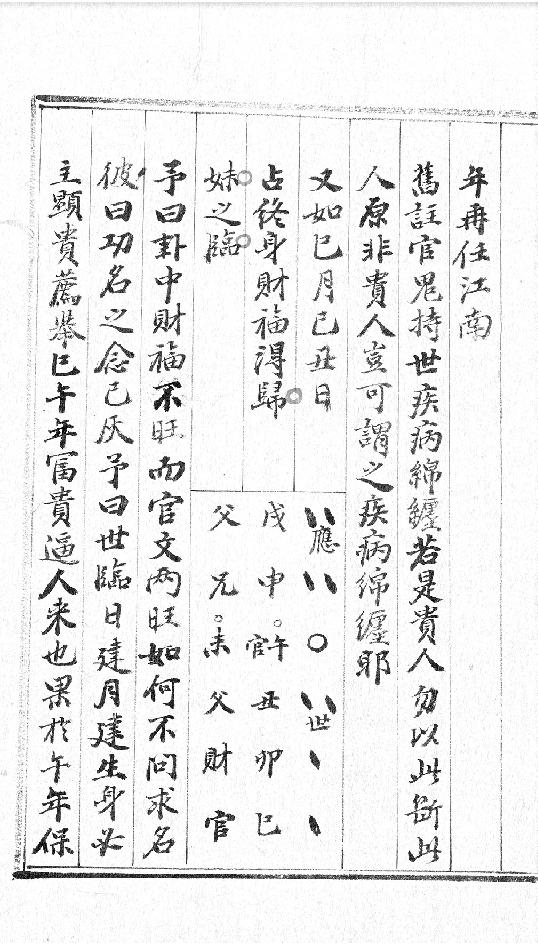 年再任江南
舊註官鬼持世疾病綿纏若是貴人勿以此斷此
人原非貴人豈可謂之疾病綿纏耶
又如巳月己丑日
占終身財福得歸
妹之臨
應 世
戌 申 官午 丑 卯 巳
父 兄 未 父 財 官
予曰卦中財福不旺而官文两旺如何不问求名
彼曰功名之念已灰予曰世臨日建月建生身必
主顯貴薦舉巳午年冨貴逼人来也果於午年保